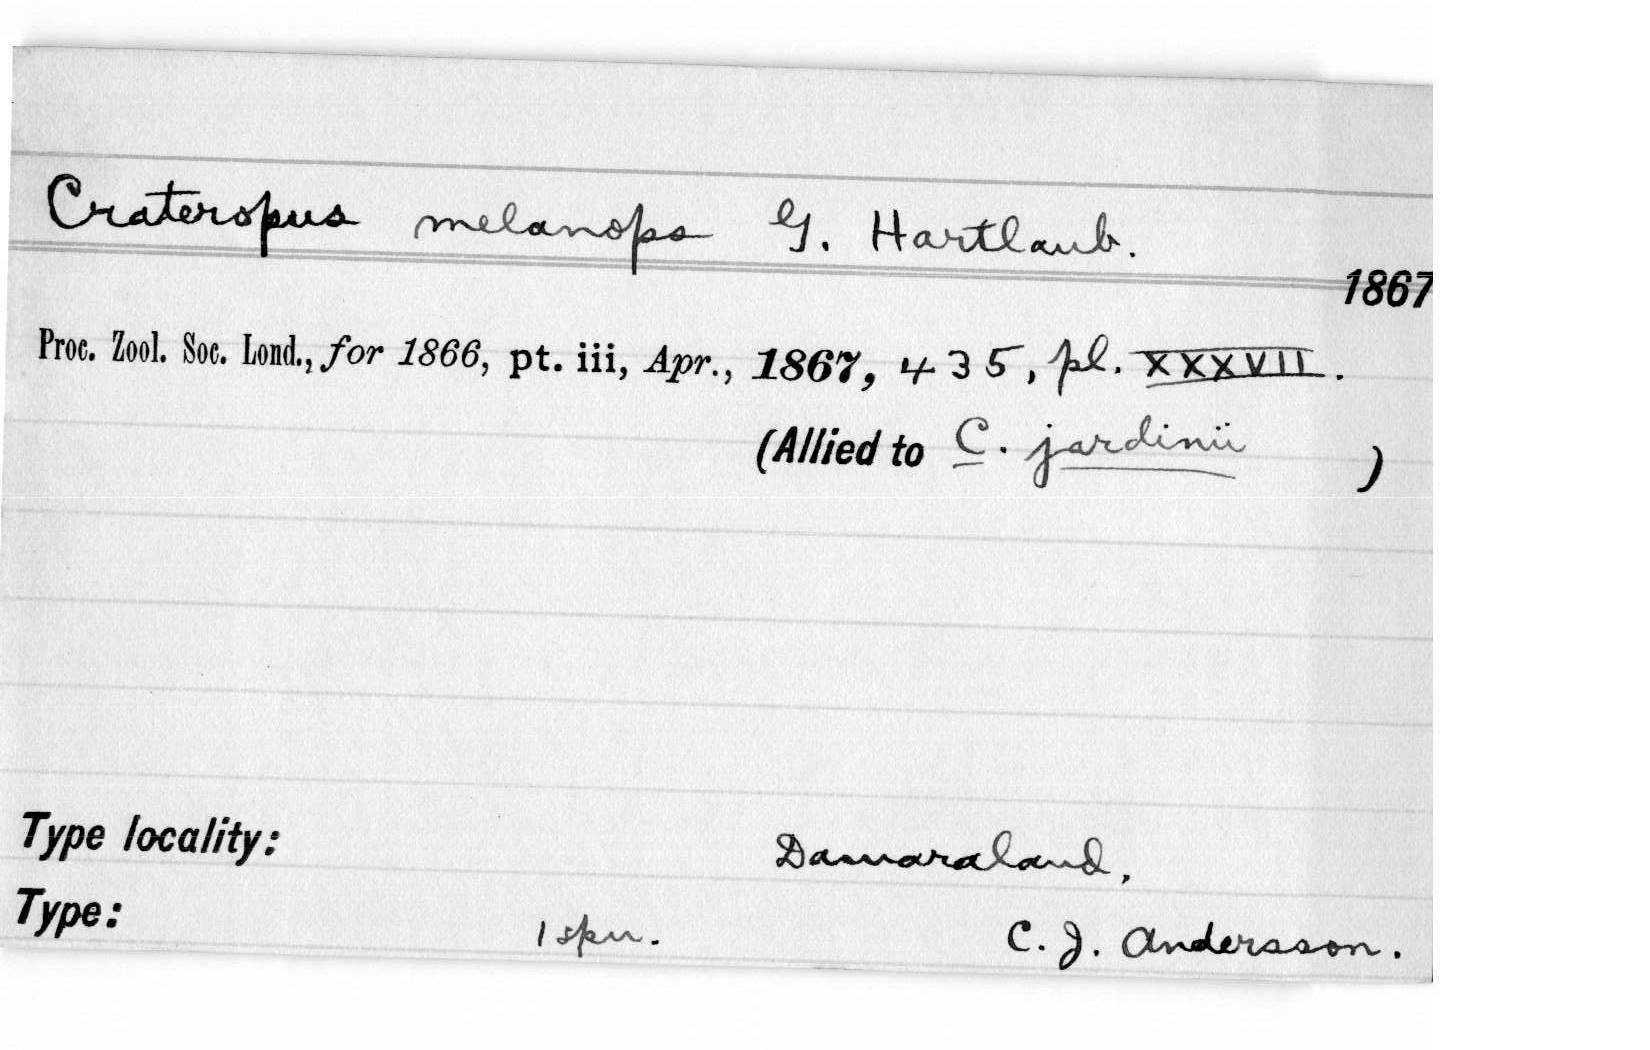 Crateropus melanops G. Hartlaub.
1867
Proc. Zool. Soc. Lond., for 1866, pt. iii, Apr., 1867, 435, pl. XXXVII.
(Allied to C. jardinii )
Type locality: Damaraland,
Type: 1 spn. C. J. Andersson.